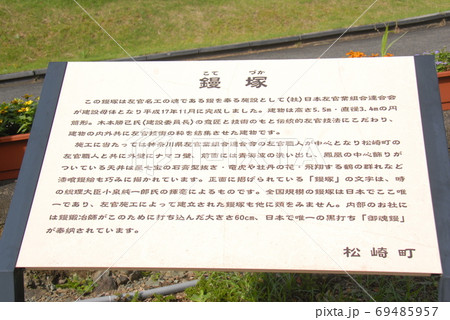 こて づか
鏝塚
この鏝塚は左官名工の魂である鏝を奉る施設として(社)日本左官業組合連合会
が建設母体となり平成17年11月に完成しました。建物は高さ5.5m・直径3.4mの円
筒形。木本勝己氏(建設委員長)の意匠と技術のもと伝統的左官技法にこだわり、
建物の内外共に左官技術の粋を結集させた建物です。
施工に当たっては神奈川県左官業組合連合会の左官職人が中心となり松崎町の
左官職人と共に外壁にナマコ壁、前面には青海波の洗い出し、鳳凰の中心飾りが
ついた天井は
の石膏型抜き・竜虎や牡丹の花・飛翔する鶴の群れなど
漆喰鏝絵も巧みに描かれています。正面に掲げられている「鏝塚」の文字は、時
の総理大臣小泉純一郎氏の揮毫によるものです。全国規模の鏝塚は日本でここ唯
一であり、左官施工によって建立された鏝塚も他に類をみません。内部のお社に
は鏝鍛冶師がこのために打ち込んだ大きさ60cm、日本で唯一の黒打ち「御魂鏝」
が奉納されています。
松崎町
pixta.jp - 69485957